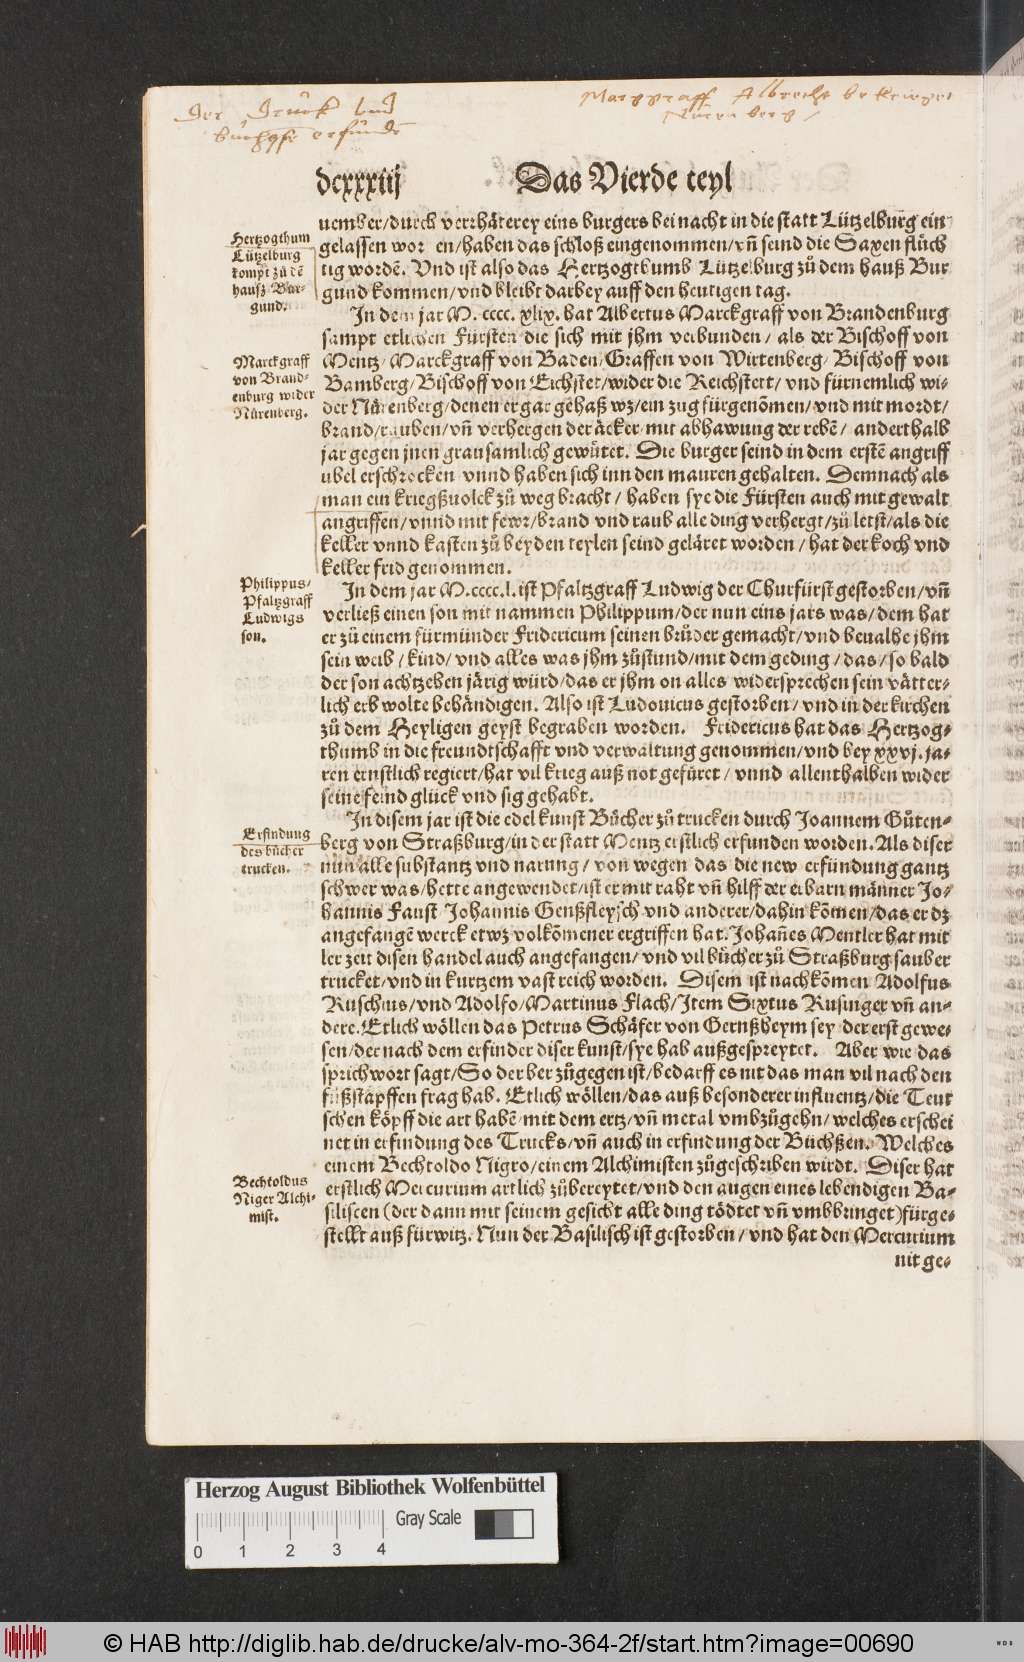 Der Druck und
büchsse erfunde
Marggraff Albrecht bekrieget
Nürenberg /
dcxxxiiij
Das Vierde teyl
uember/durch verrhäterey eins burgers bei nacht in die statt Lützelburg ein
gelassen worden/haben das schloß eingenommen/vñ seind die Saxen flüch
tig wordẽ. Vnd ist also das Hertzogthumb Lützelburg zů dem hauß Bur
gund kommen/vnd bleibt darbey auff den heutigen tag.
Hertzogthum
Lützelburg
kompt zů dẽ
hausz Bur-
gund.
In dem jar M. cccc. xlix. hat Albertus Marckgraff von Brandenburg
sampt etlichen Fürsten die sich mit jhm verbunden/ als der Bischoff von
Mentz/Marckgraff von Baden/Graffen von Wirtenberg/ Bischoff von
Bamberg/Bischoff von Eichstet/wider die Reichstett/ vnd fürnemlich wi-
der Nürenberg/denen er gar gehaß wz/ein zug fürgenõmen/vnd mit mordt/
brand/rauben/vñ verhergen der äcker/mit abhawung der rebẽ/ anderthalb
jar gegen jnen grausamlich gewütet. Die burger seind in dem erstẽ angriff
übel erschrocken vnnd haben sich inn den mauren gehalten. Demnach als
man ein kriegßuolck zů weg bracht/ haben sye die Fürsten auch mit gewalt
angriffen/vnnd mit fewr/brand vnd raub alle ding verhergt/zů letst/als die
keller vnnd kasten zů beyden teylen seind geläret worden/hat der koch vnd
keller frid genommen.
Marckgraff
von Brand-
enburg wider
Nürenberg.
In dem jar M.cccc.l. ist Pfaltzgraff Ludwig der Churfürst gestorben/vñ
verließ einen son mit nammen Philippum/der nun eins jars was/dem hat
er zů einem fürmünder Fridericum seinen brůder gemacht/vnd beualhe jhm
sein weib/kind/vnd alles was jhm zůstund/mit dem geding/das/so bald
der son achtzehen järig würd/das er jhm on alles widersprechen sein vätter-
lich erb wolte behändigen. Also ist Ludouicus gestorben/ vnd in der kirchen
zů dem Heyligen geyst begraben worden. Fridericus hat das Hertzog-
thumb in die freundtschafft vnd verwaltung genommen/vnd bey xxvj. ja-
ren ernstlich regiert/hat vil krieg auß not gefüret/vnnd allenthalben wider
seine feind glück vnd sig gehabt.
Philippus/
Pfaltzgraff
Ludwigs
son.
In disem jar ist die edel kunst Bücher zů trucken durch Joannem Gůten-
berg von Straßburg/in der statt Mentz erstlich erfunden worden. Als diser
nun alle substantz vnd narung/von wegen das die new erfündung gantz
schwer was/hette angewendet/ist er mit raht vñ hilff der erbarn männer Jo-
hannis Faust Johannis Genßfleysch vnd anderer/dahin kõmen/das er dz
angefangẽ werck etwz volkõmener ergriffen hat. Johañes Mentler hat mit
ler zeit disen handel auch angefangen/vnd vil bücher zů Straßburg sauber
trucket/vnd in kurtzem vast reich worden. Disem ist nachkõmen Adolfus
Ruschius/vnd Adolfo/Martinus Flach/Item Sixtus Rusinger vñ an-
dere. Etlich wöllen das Petrus Schäfer von Gernßheym sey der erst gewe-
sen/der nach dem erfinder diser kunst/sye hab außgespreytet. Aber wie das
sprichwort sagt/So der ber zůgegen ist/bedarff es nit das man vil nach den
fůßstapffen frag hab. Etlich wöllen/das auß besonderer influentz/die Teut
schen köpff die art habẽ/mit dem ertz/vñ metal vmbzůgehn/welches erschei
net in erfindung des Trucks/vñ auch in erfindung der Büchßen. Welches
einem Bechtoldo Nigro/einem Alchimisten zůgeschriben wirdt. Diser hat
erstlich Mercurium artlich zůbereytet/vnd den augen eines lebendigen Ba-
siliscen (der dann mit seinem gesicht alle ding tödtet vñ vmbbringet) fürge-
stellt auß fürwitz. Nun der Basilisch ist gestorben/vnd hat den Mercurium
nit ge-
Erfindung
des bücher
trucken.
Bechtoldus
Niger Alchi-
mist.
Herzog August Bibliothek Wolfenbüttel
Gray Scale
0 1 2 3 4
© HAB http://diglib.hab.de/drucke/alv-mo-364-2f/start.htm?image=00690